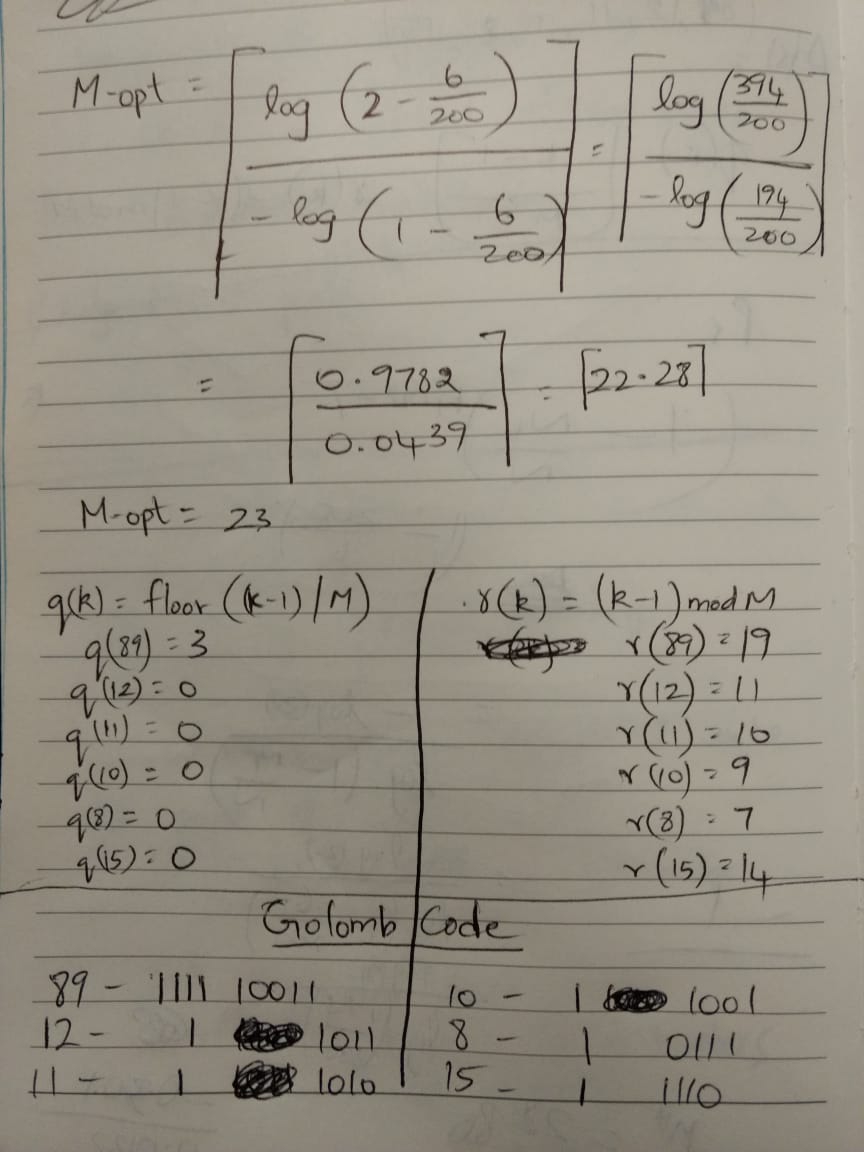 M-opt = ⌈ log (2 - 6/200) / - log (1 - 6/200) ⌉ = ⌈ log (394/200) / - log (194/200) ⌉
= ⌈ 0.9782 / 0.0439 ⌉ = ⌈22.28⌉
M-opt = 23
q(k) = floor ((k-1)/M)
q(89) = 3
q(12) = 0
q(11) = 0
q(10) = 0
q(8) = 0
q(15) = 0
r(k) = (k-1) mod M
r(89) = 19
r(12) = 11
r(11) = 10
r(10) = 9
r(8) = 7
r(15) = 14
Golomb Code
89 - 1111 10011
12 - 1 1011
11 - 1 1010
10 - 1 1001
8 - 1 0111
15 - 1 1110